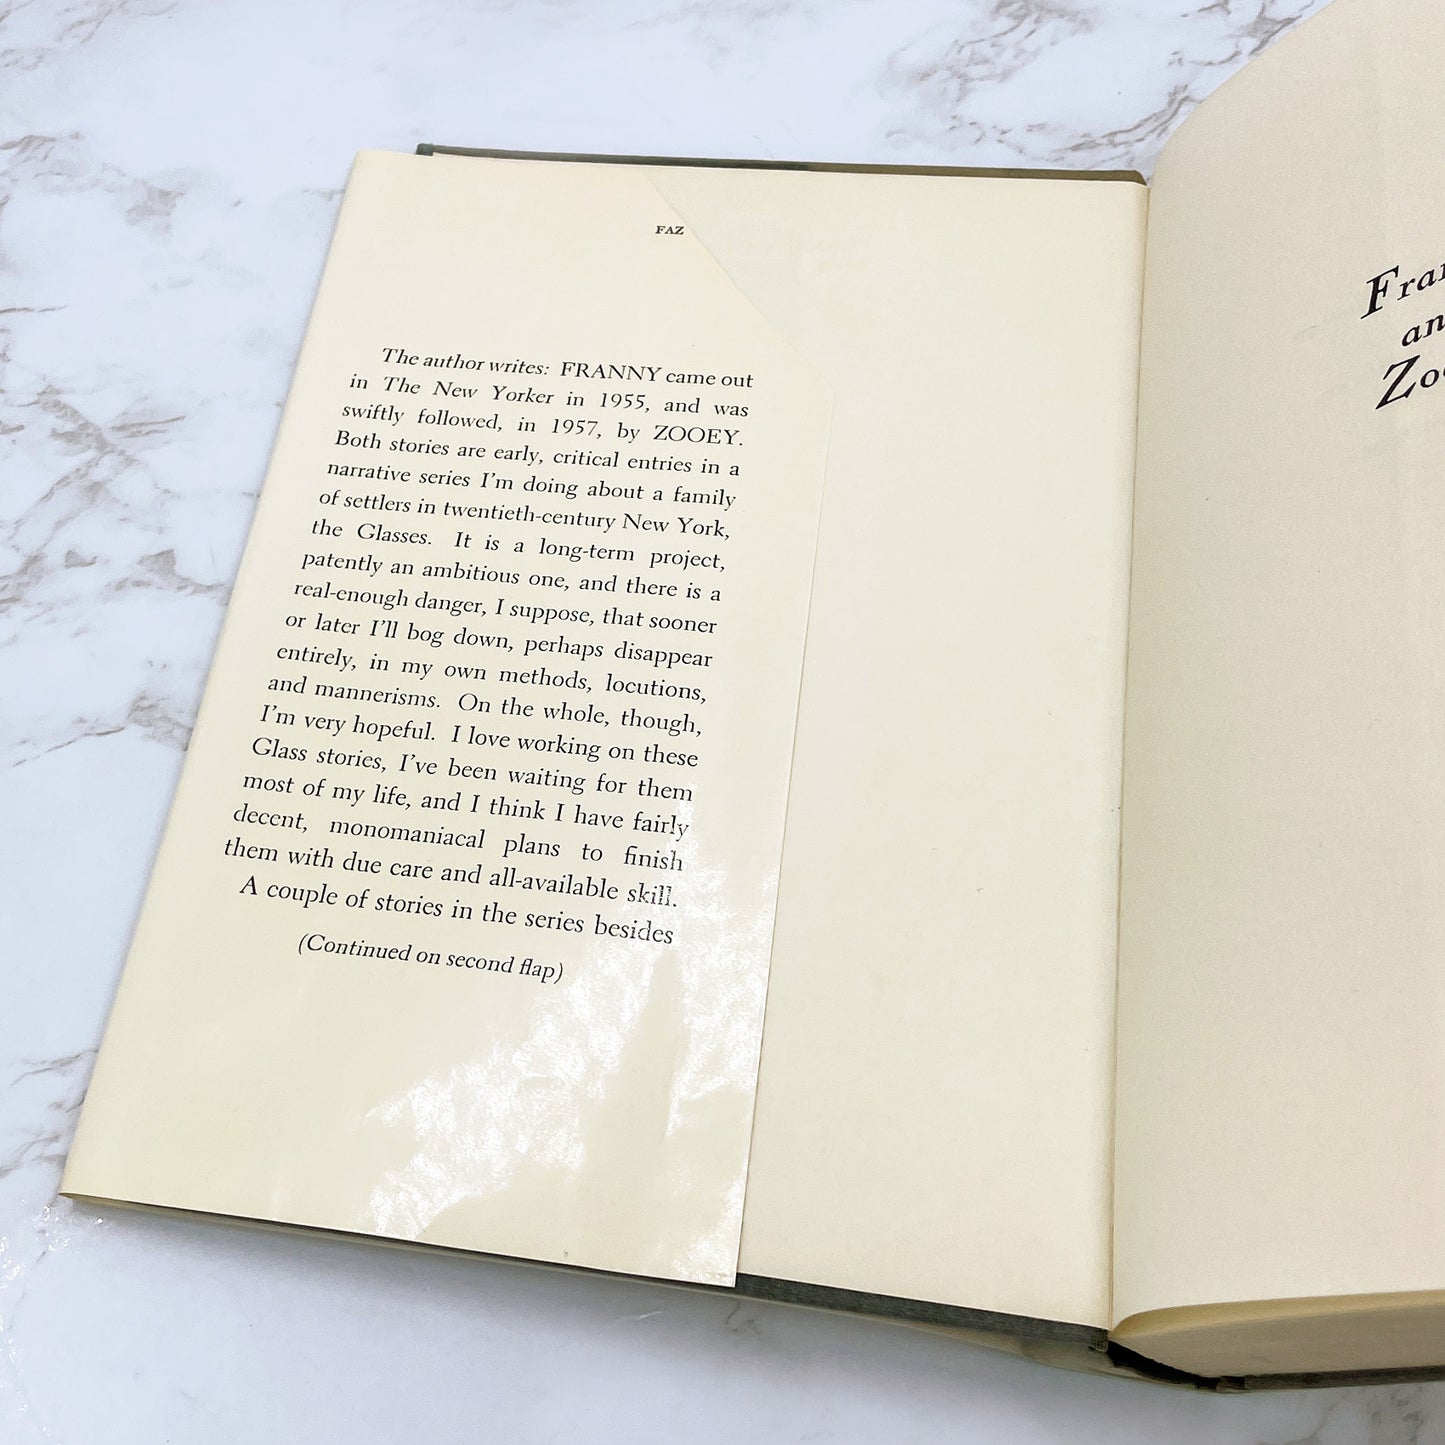 FAZ
The author writes: FRANNY came out
in The New Yorker in 1955, and was
swiftly followed, in 1957, by ZOOEY.
Both stories are early, critical entries in a
narrative series I'm doing about a family
of settlers in twentieth-century New York,
the Glasses. It is a long-term project,
patently an ambitious one, and there is a
real-enough danger, I suppose, that sooner
or later I'll bog down, perhaps disappear
entirely, in my own methods, locutions,
and mannerisms. On the whole, though,
I'm very hopeful. I love working on these
Glass stories, I've been waiting for them
most of my life, and I think I have fairly
decent, monomaniacal plans to finish
them with due care and all-available skill.
A couple of stories in the series besides
(Continued on second flap)